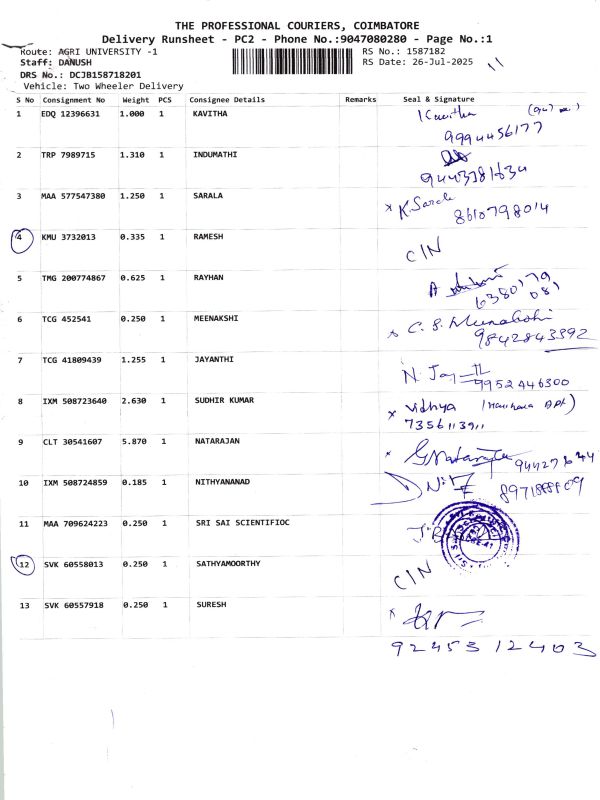 THE PROFESSIONAL COURIERS, COIMBATORE
Delivery Runsheet - PC2 - Phone No.:9047080280 - Page No.:1
Route: AGRI UNIVERSITY -1 RS No.: 1587182
Staff: DANUSH RS Date: 26-Jul-2025 11
DRS No.: DCJB158718201
Vehicle: Two Wheeler Delivery
S No Consignment No Weight PCS Consignee Details Remarks Seal & Signature
1 EDQ 12396631 1.000 1 KAVITHA Kavitha
9994456177
2 TRP 7989715 1.310 1 INDUMATHI
9443781634
3 MAA 577547380 1.250 1 SARALA x K. Sarala
8610798014
4 KMU 3732013 0.335 1 RAMESH CIN
5 TMG 200774867 0.625 1 RAYHAN A
6380179
081
6 TCG 452541 0.250 1 MEENAKSHI x C. S. Meenakshi
9842843392
7 TCG 41809439 1.255 1 JAYANTHI N. Jay
9952446300
8 IXM 508723640 2.630 1 SUDHIR KUMAR x Vidhya
7356113911
9 CLT 30541607 5.870 1 NATARAJAN x G Natarajan
10 IXM 508724859 0.185 1 NITHYANANAD
11 MAA 709624223 0.250 1 SRI SAI SCIENTIFIOC
12 SVK 60558013 0.250 1 SATHYAMOORTHY CIN
13 SVK 60557918 0.250 1 SURESH x
92453 12403